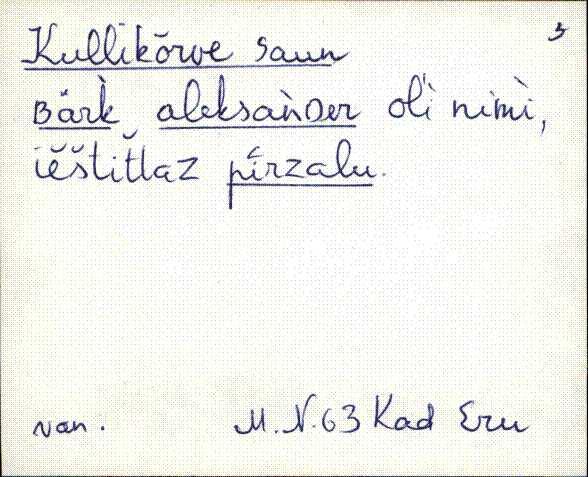 5
Kullikõrve saun
Bärk̀, aleksànDer oĺi nimì,
iěštiťlaz pírzalu.
van. M. N. 63 Kad Eru